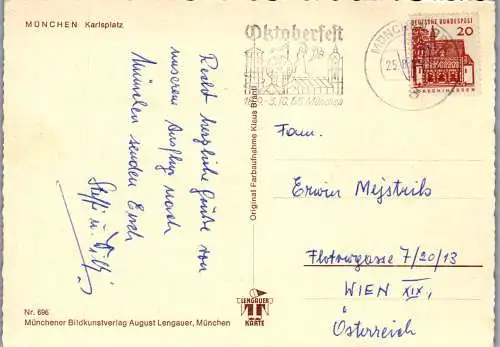 MÜNCHEN Karlsplatz
Recht herzliche Grüße von
unserem Ausflug nach
München senden Euch
Steffi u. Willi
Nr. 696
Münchener Bildkunstverlag August Lengauer, München
Original Farbaufnahme Klaus Brantl
LENGAUER
KARTE
Oktoberfest
MÜNCHEN
DEUTSCHE BUNDESPOST
20
LORSCH/HESSEN
Fam.
Erwin Mejstrik
Flotowgasse 7/20/13
WIEN XIX,
Österreich